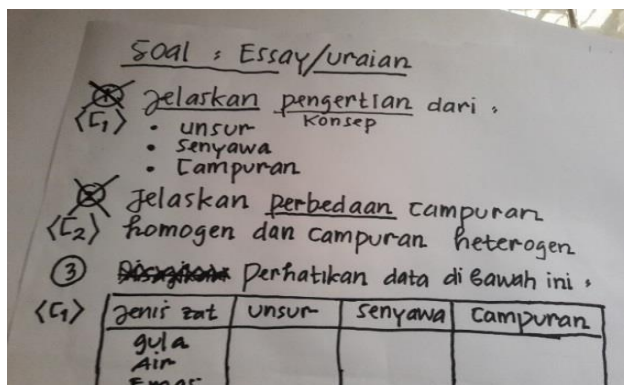 Soal : Essay/uraian
① Jelaskan pengertian dari :
<C1> Konsep
• unsur
• Senyawa
• Campuran
② Jelaskan perbedaan campuran
<C2> homogen dan campuran heterogen
③ Perhatikan data di bawah ini :
<C1> Jenis zat unsur senyawa campuran
gula
Air
Emas